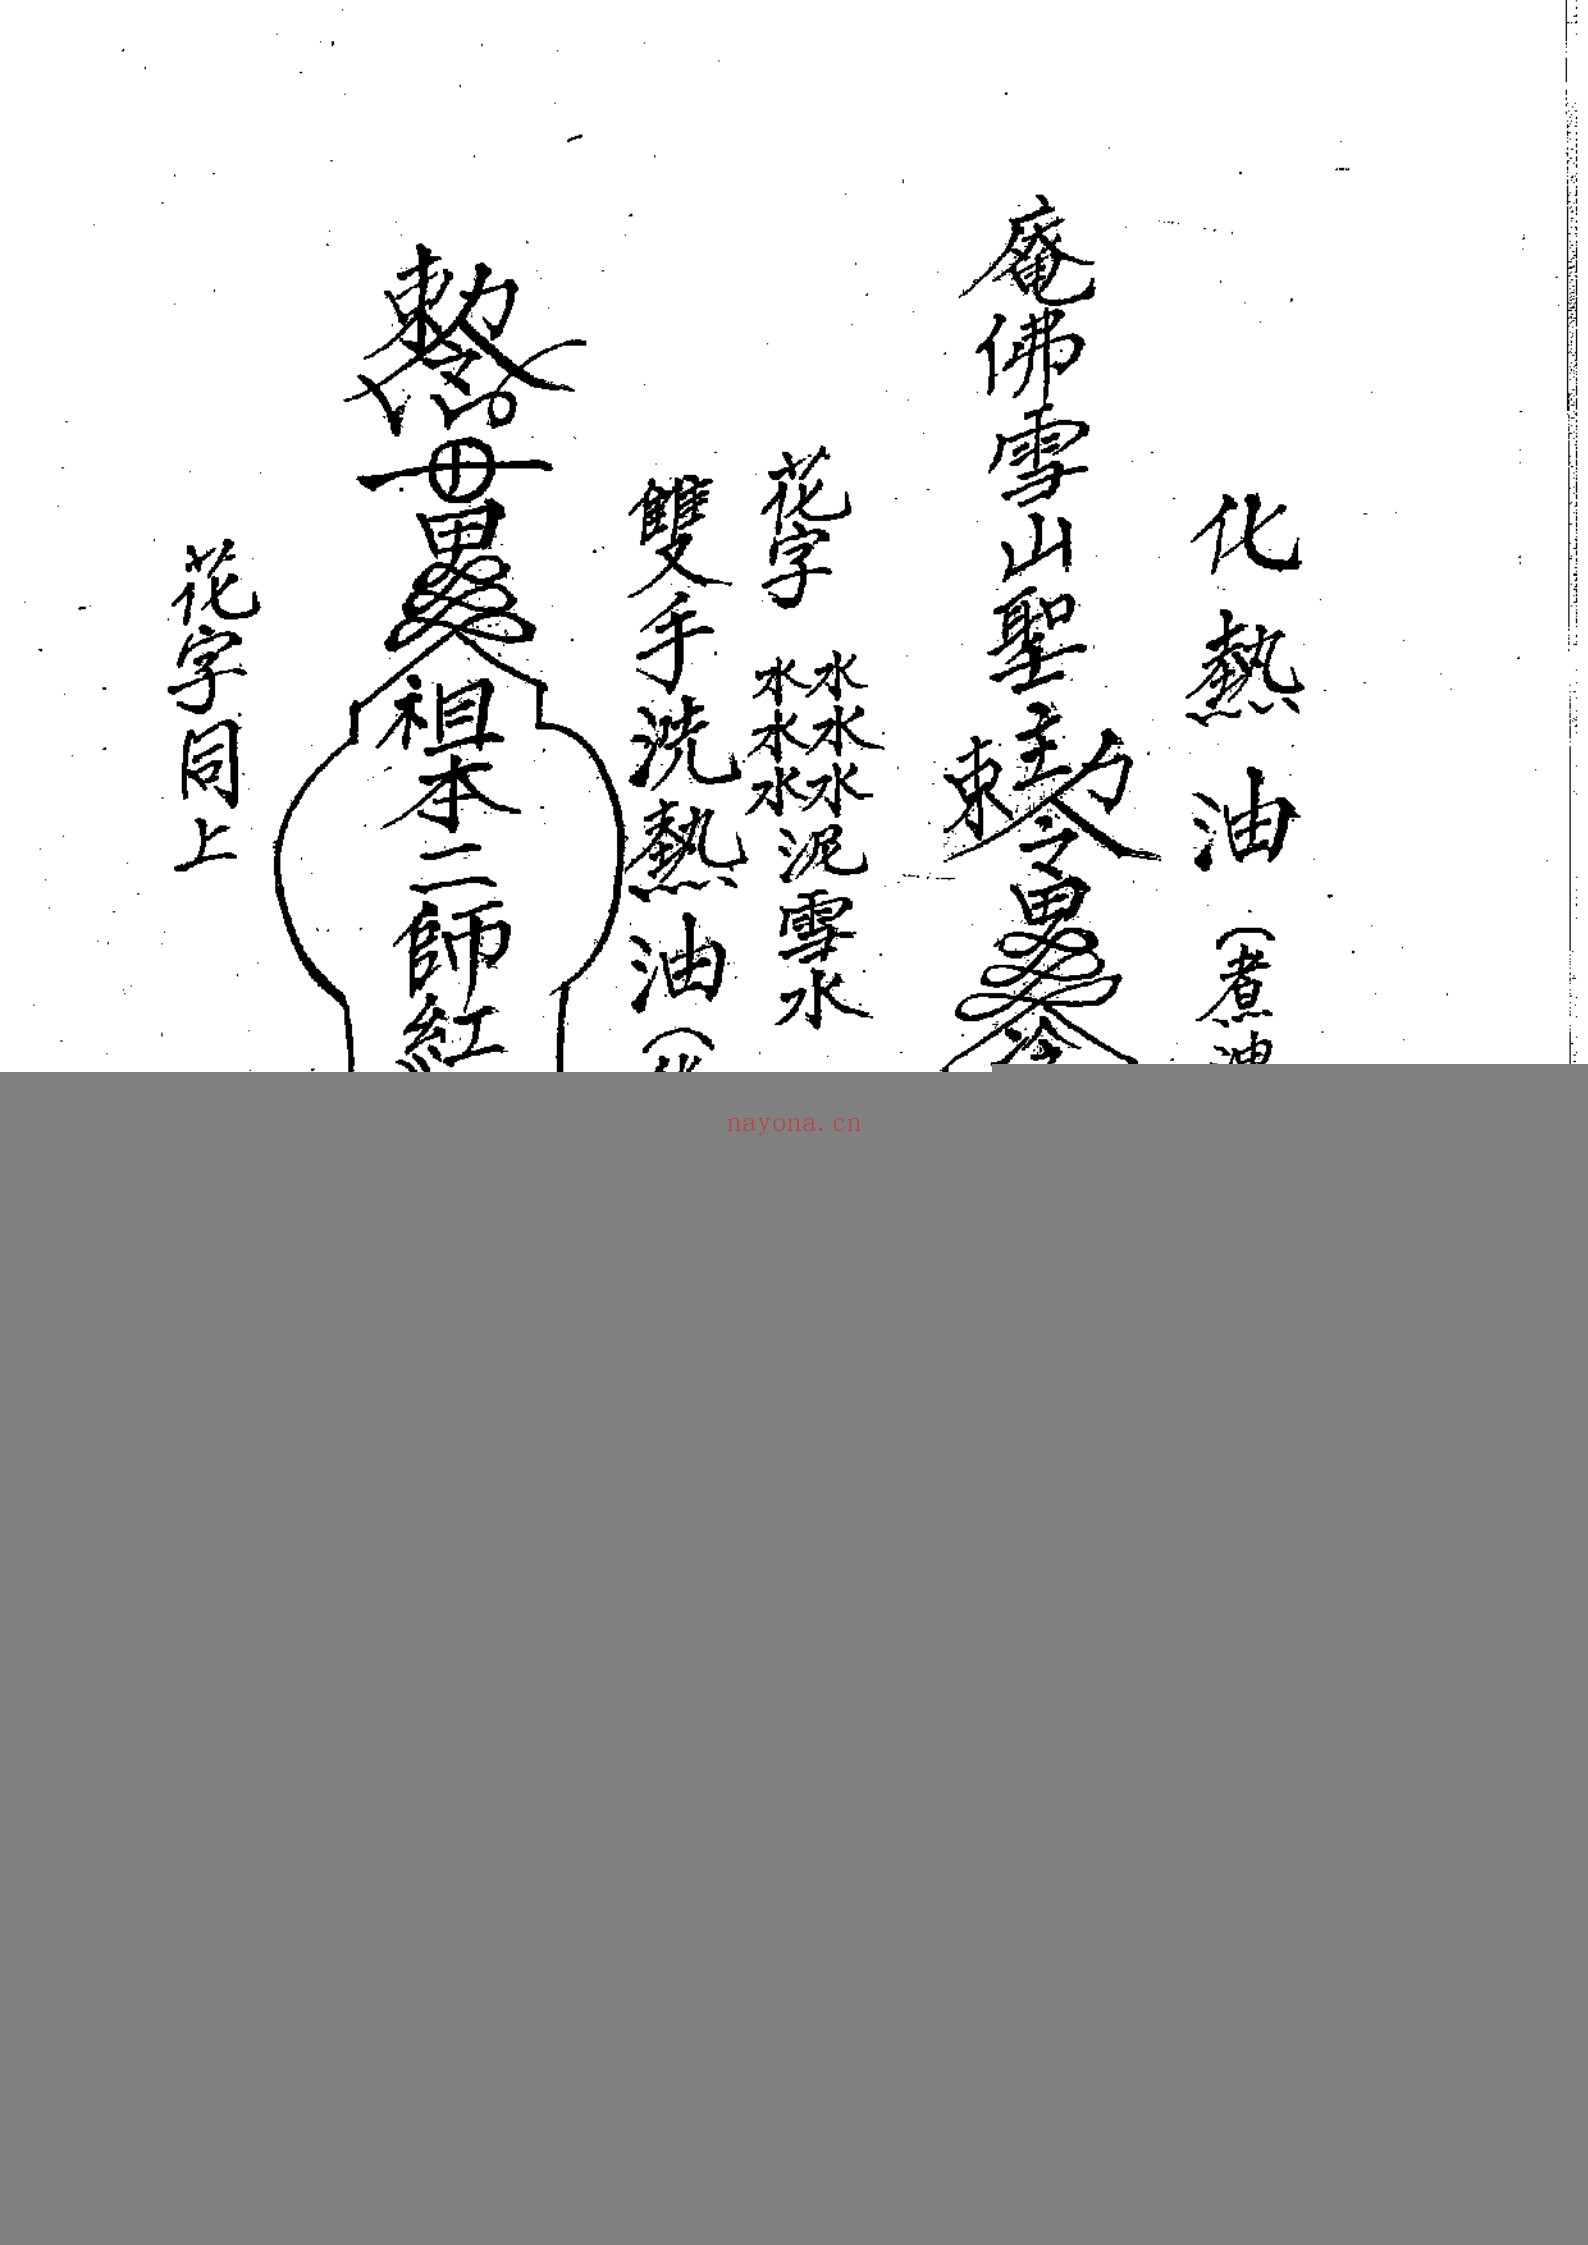 化熱油（煮油
庵佛雪山聖主敕令
花字 水水水水水水泥雪水
雙手洗熱油（
敕令
祖本二師紅
花字同上
nayona.cn